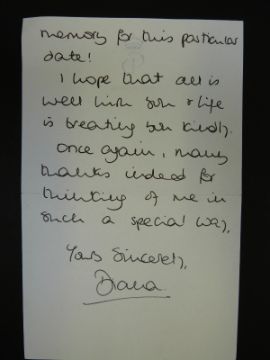 memory for this particular
date!
I hope that all is
well with you & life
is treating you kindly.
Once again, many
thanks indeed for
thinking of me in
such a special way,
Yours Sincerely,
Diana